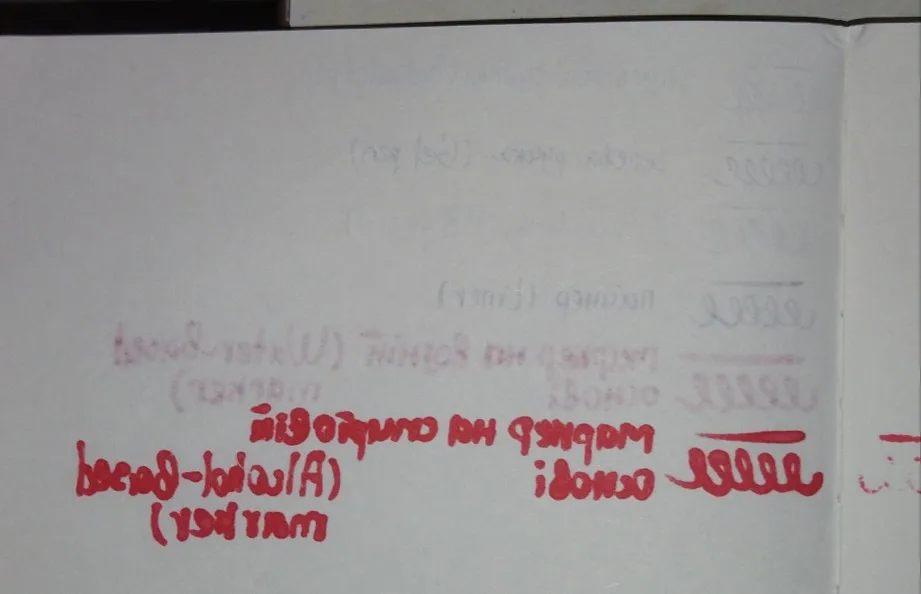 гелева ручка (Gel pen)
лайнер (liner)
маркер на водній (Water-based
основі marker)
маркер на спиртовій
основі (Alcohol-based
marker)